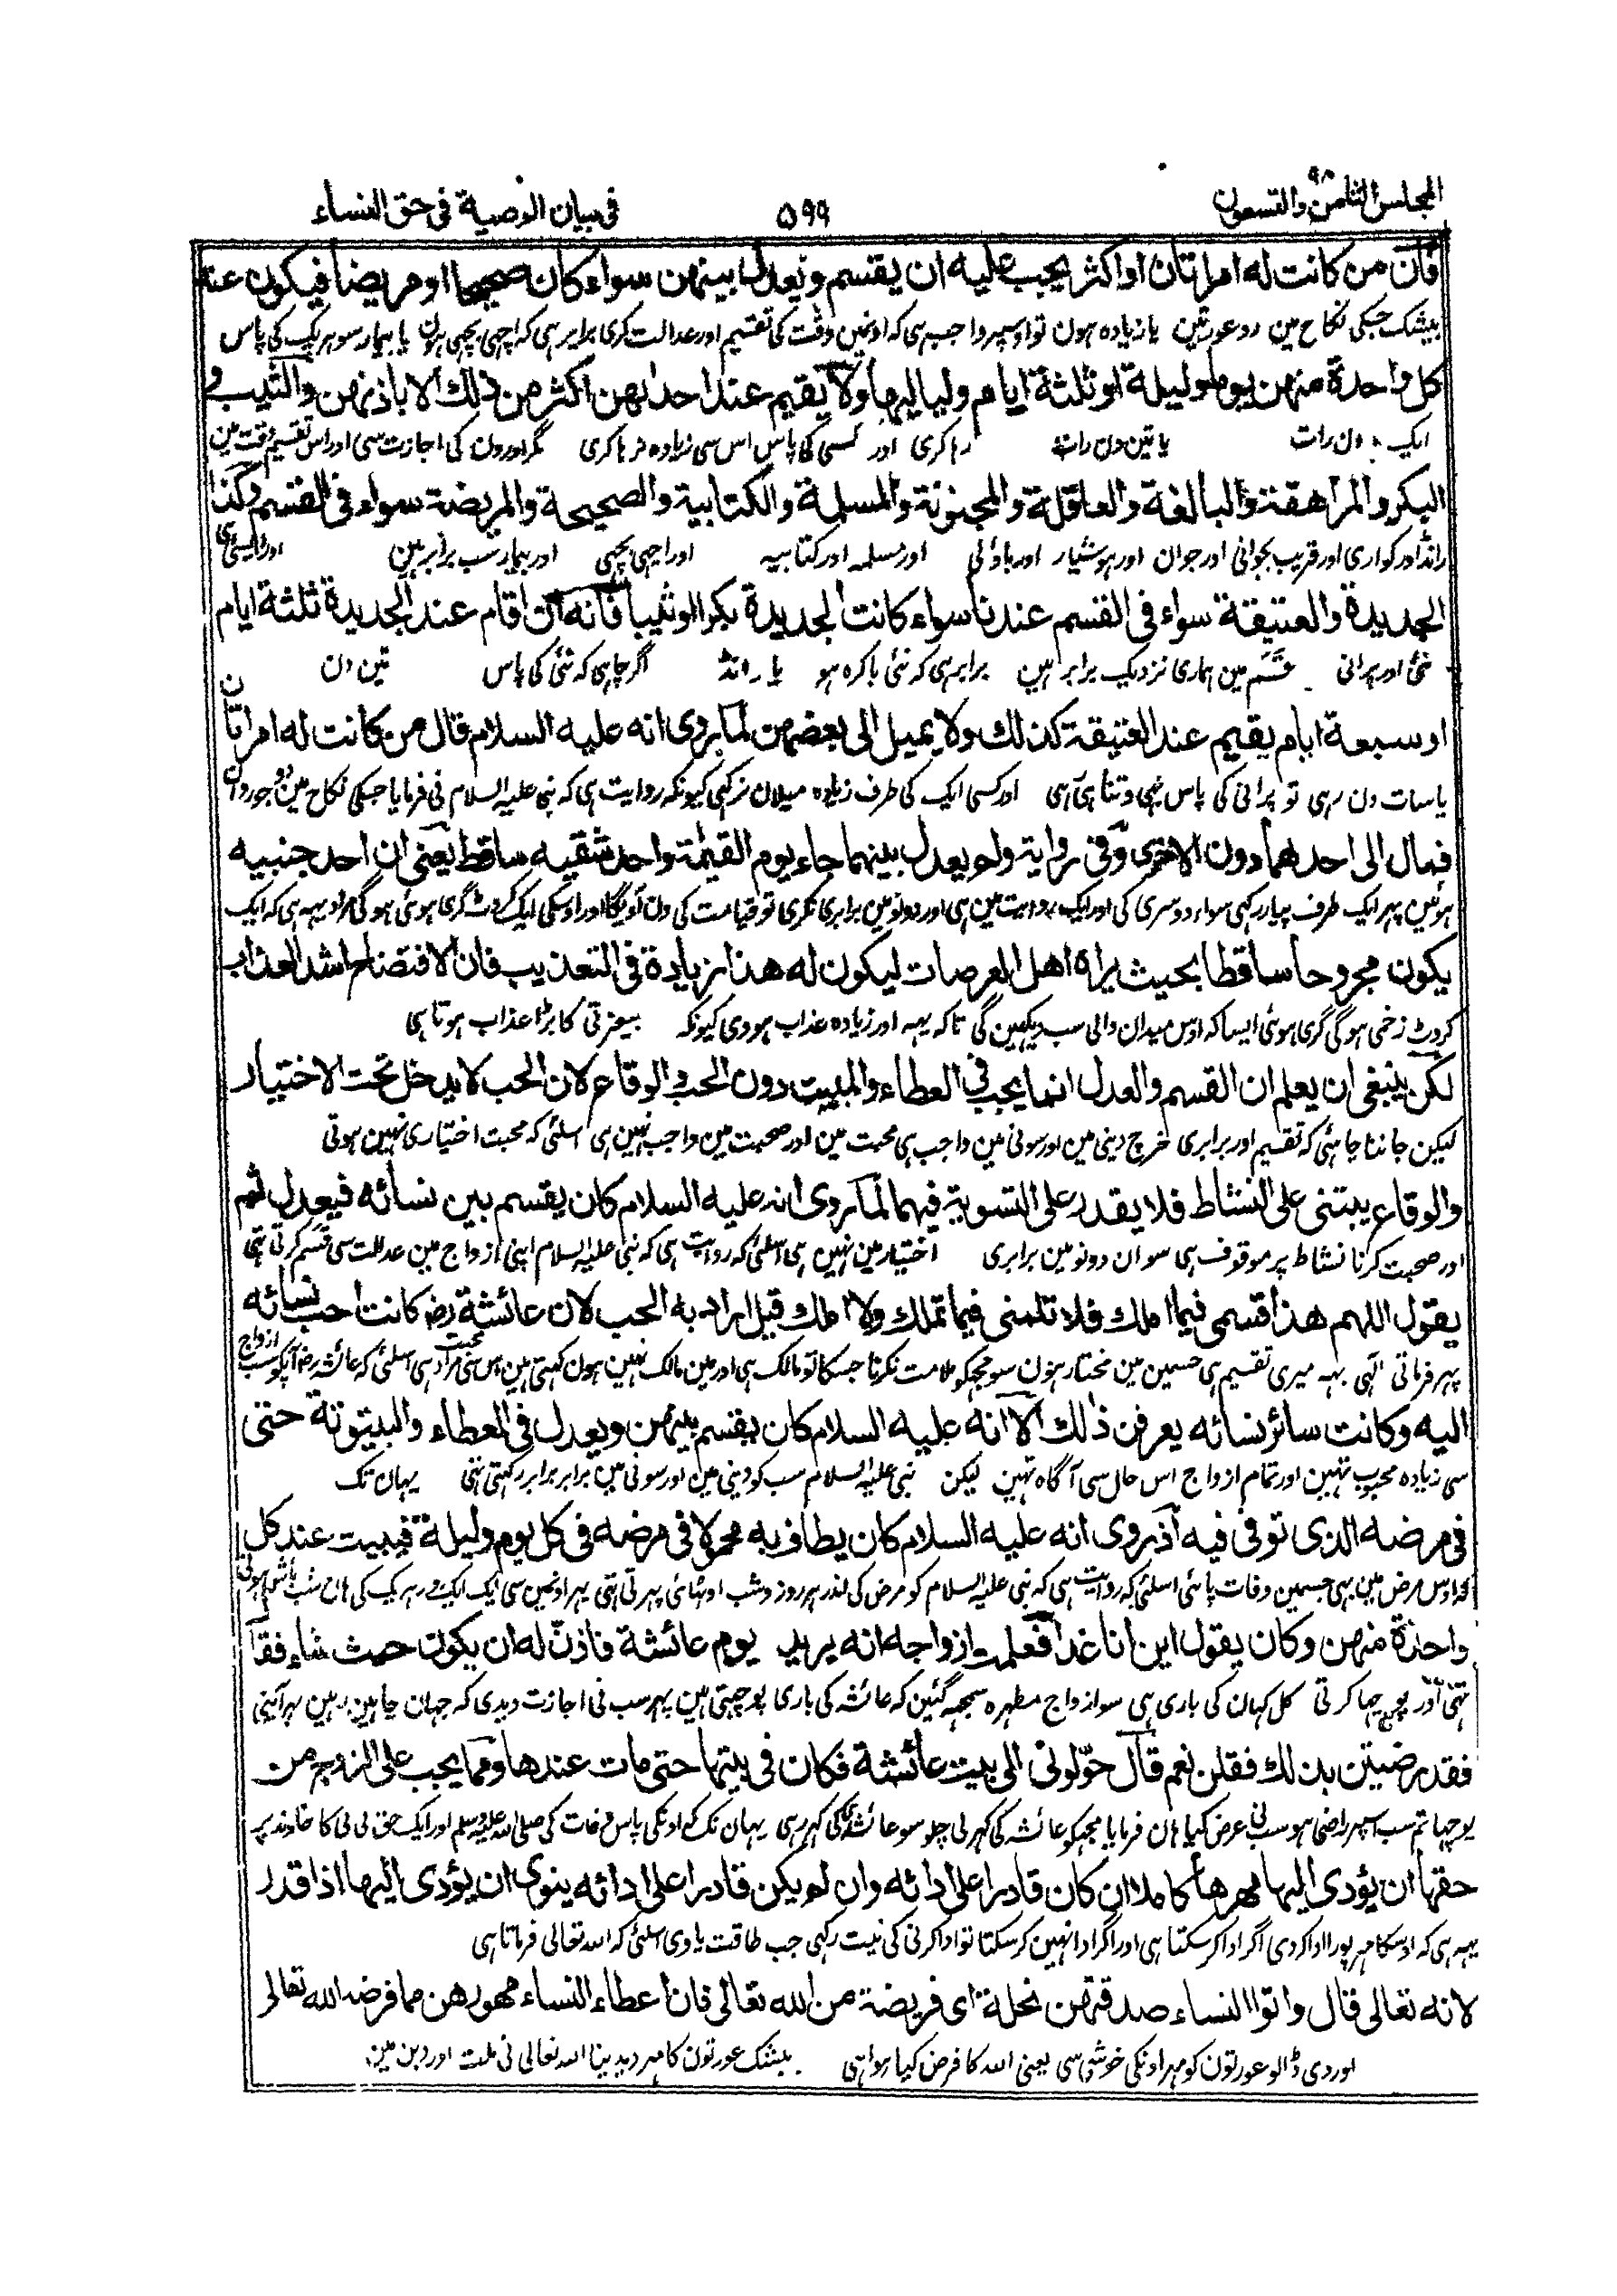 المجلس الثامن والتسعون ۹۸
۵۹۹
فى بيان الوصية فى حق النساء
فان من كانت له امراتان او اكثر يجب عليه ان يقسم ويعدل بينهن سواء كان صحيحا او مريضا فيكون عند
بیشک جسکی نکاح مین دو عورتین یا زیادہ ہون تو اوسپر واجب ہی کہ اونمین وقت کی تقسیم اور عدالت کری برابر ہی کہ اچہی بچہی ہون یا بیمار سو ہر یک کی پاس
كل واحدة منهن يوما وليلة او ثلثة ايام ولياليها ولا يقيم عند احدىهن اكثر من ذلك الا باذنهن والثيب و
ایک دن رات یا تین دن رات رہا کری اور کسی کی پاس اس سی زیادہ نرہا کری مگر اورون کی اجازت سی اور اس تقسیم وقت مین
البكر والمراهقة والبالغة والعاقلة والمجنونة والمسلمة والكتابية والصحيحة والمريضة سواء فى القسم وكذا
رانڈ اور کواری اور قریب بجوانی اور جوان اور ہوشیار اور باؤلی اور مسلمہ اور کتابیہ اور اچہی بچہی اور بیمار سب برابر ہین اور ایسی ہی
الجديدة والعتيقة سواء فى القسم عندنا سواء كانت الجديدة بكرا او ثيبا فانه ان اقام عند الجديدة ثلثة ايام
نئی اور پرانی قسم مین ہماری نزدیک برابر ہین برابر ہی کہ نئی باکرہ ہو یا رانڈ اگر چاہی کہ نئی کی پاس تین دن
او سبعة ايام يقيم عند العتيقة كذلك ولا يميل الى بعضهن لما روى انه عليه السلام قال من كانت له امراتان
یا سات دن رہی تو پرانی کی پاس بہی وتنا ہی رہی اور کسی ایک کی طرف زیادہ میلان نرکہی کیونکہ روایت ہی کہ نبی علیہ السلام نی فرمایا جسکی نکاح مین دو جوروان
فمال الى احدهما دون الاخرى وفى رواية ولم يعدل بينهما جاء يوم القيمة واحد شقيه ساقط يعنى ان احد جنبيه
ہوئین پہر ایک طرف پیار رکہی سواء دوسری کی اور ایک روایت مین ہی اور دونو مین برابری نکری تو قیامت کی دن آویگا اور اوسکی ایک کروٹ گری ہوئی ہوگی مراد یہہ ہی کہ ایک
يكون مجروحا ساقطا بحيث يراه اهل العرصات ليكون له هذا زيادة فى التعذيب فان الافتضاح اشد العذاب
کروٹ زخمی ہوگی گری ہوئی ایسا کہ اوس میدان والی سب دیکہین گی تاکہ یہہ اور زیادہ عذاب ہووی کیونکہ بیعزتی کا بڑا عذاب ہوتا ہی
لكن ينبغى ان يعلم ان القسم والعدل انما يجب فى العطاء والمبيت دون الحب والوقاع لان الحب لا يدخل تحت الاختيار
لیکن جاننا چاہئی کہ تقسیم اور برابری خرچ دینی مین اور سونی مین واجب ہی محبت مین اور صحبت مین واجب نہین ہی اسلئی کہ محبت اختیاری نہین ہوتی
والوقاع يبتنى على النشاط فلا يقدر على التسوية فيهما لما روى انه عليه السلام كان يقسم بين نسائه فيعدل ثم
اور صحبت کرنا نشاط پر موقوف ہی سو ان دونو مین برابری اختیار مین نہین ہی اسلئی کہ روایت ہی کہ نبی علیہ السلام اپنی ازواج مین عدالت سی قسم کرتی تہی
يقول اللهم هذا قسمى فيما املك فلا تلمنى فيما تملك ولا املك قيل اراد به الحب لان عائشة رضه كانت احب نسائه
پہر فرماتی الہی یہہ میری تقسیم ہی جسمین مین مختار ہون سو مجہکو ملامت نکرنا جسکا تو مالک ہی اور مین مالک نہین ہون کہتی ہین اس سی محبت مراد ہی اسلئی کہ عائشہ رضہ آپکو سب ازواج
اليه وكانت سائر نسائه يعرفن ذلك الا انه عليه السلام كان يقسم بينهن ويعدل فى العطاء والبيتوتة حتى
سی زیادہ محبوب تہین اور تمام ازواج اس حال سی آگاہ تہین لیکن نبی علیہ السلام سب کو دینی مین اور سونی مین برابر برابر رکہتی تہی یہان تک
فى مرضه الذى توفى فيه اذ روى انه عليه السلام كان يطاف به محمولا فى مرضه فى كل يوم وليلة فيبيت عند كل
کہ اوس مرض مین بہی جسمین وفات پائی اسلئی کہ روایت ہی کہ نبی علیہ السلام کو مرض کی اندر ہر روز و شب اوٹہائی پہرتی تہی پہر اونمین سی ایک ایک ہر یک کی ہان شب باش ہوتی
واحدة منهن وكان يقول اين انا غدا فعلمت ازواجه انه يريد يوم عائشة فاذن له ان يكون حيث شاء فقال
تہی اور پوچہا کرتی کل کہان کی باری ہی سو ازواج مطہرہ سمجہہ گئین کہ عائشہ کی باری پوچہتی ہین پہر سب نی اجازت دیدی کہ جہان چاہین رہین پہر آپنی
فقد رضيتن بذلك فقلن نعم قال حوّلونى الى بيت عائشة فكان فى بيتها حتى مات عندها ومما يجب على الزوج من
پوچہا تم سب اسپر راضی ہو سب نی عرض کیا ہان فرمایا مجہکو عائشہ کی گہر لی چلو سو عائشہ کی گہر رہی یہان تک کہ اونکی پاس وفات کی صلی اللہ علیہ وسلم اور ایک حق بی بی کا خاوند پر
حقها ان يؤدى اليها مهرها كاملا ان كان قادرا على ادائه وان لم يكن قادرا على ادائه ينوى ان يؤدى اليها اذا قدر
یہہ ہی کہ اوسکا مہر پورا ادا کردی اگر ادا کر سکتا ہی اور اگر ادا نہین کر سکتا تو ادا کرنی کی نیت رکہی جب طاقت پاوی اسلئی کہ اللہ تعالی فرماتا ہی
لانه تعالى قال واتوا النساء صدقتهن نحلة اى فريضة من الله تعالى فان اعطاء النساء مهورهن مما فرضه الله تعالى
اور دی ڈالو عورتون کو مہر اونکی خوشی سی یعنی اللہ کا فرض کیا ہوا ہی بیشک عورتون کا مہر دیدینا اللہ تعالی نی ملت اور دین مین